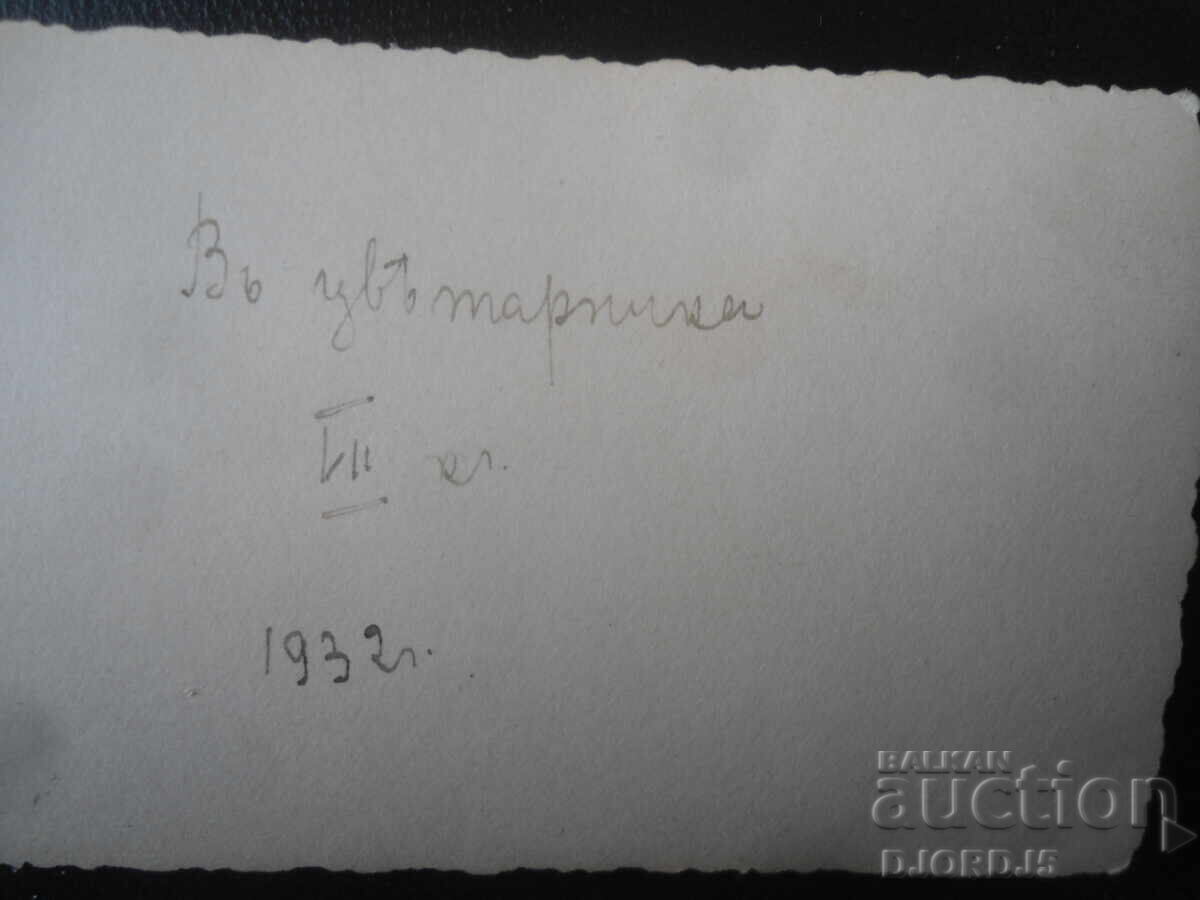 Въ цвѣтарника
VII кл.
1932 г.
BALKAN
auction
DJORDJ5